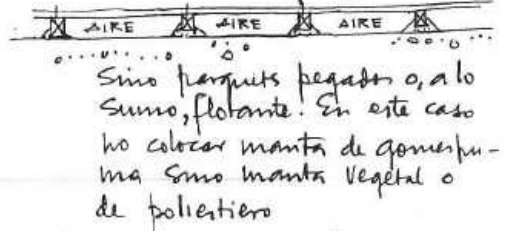 AIRE AIRE AIRE
Sino parquets pegados o, a lo
Sumo, flotante. En este caso
no colocar manta de gomespu-
ma sino manta vegetal o
de poliestiero